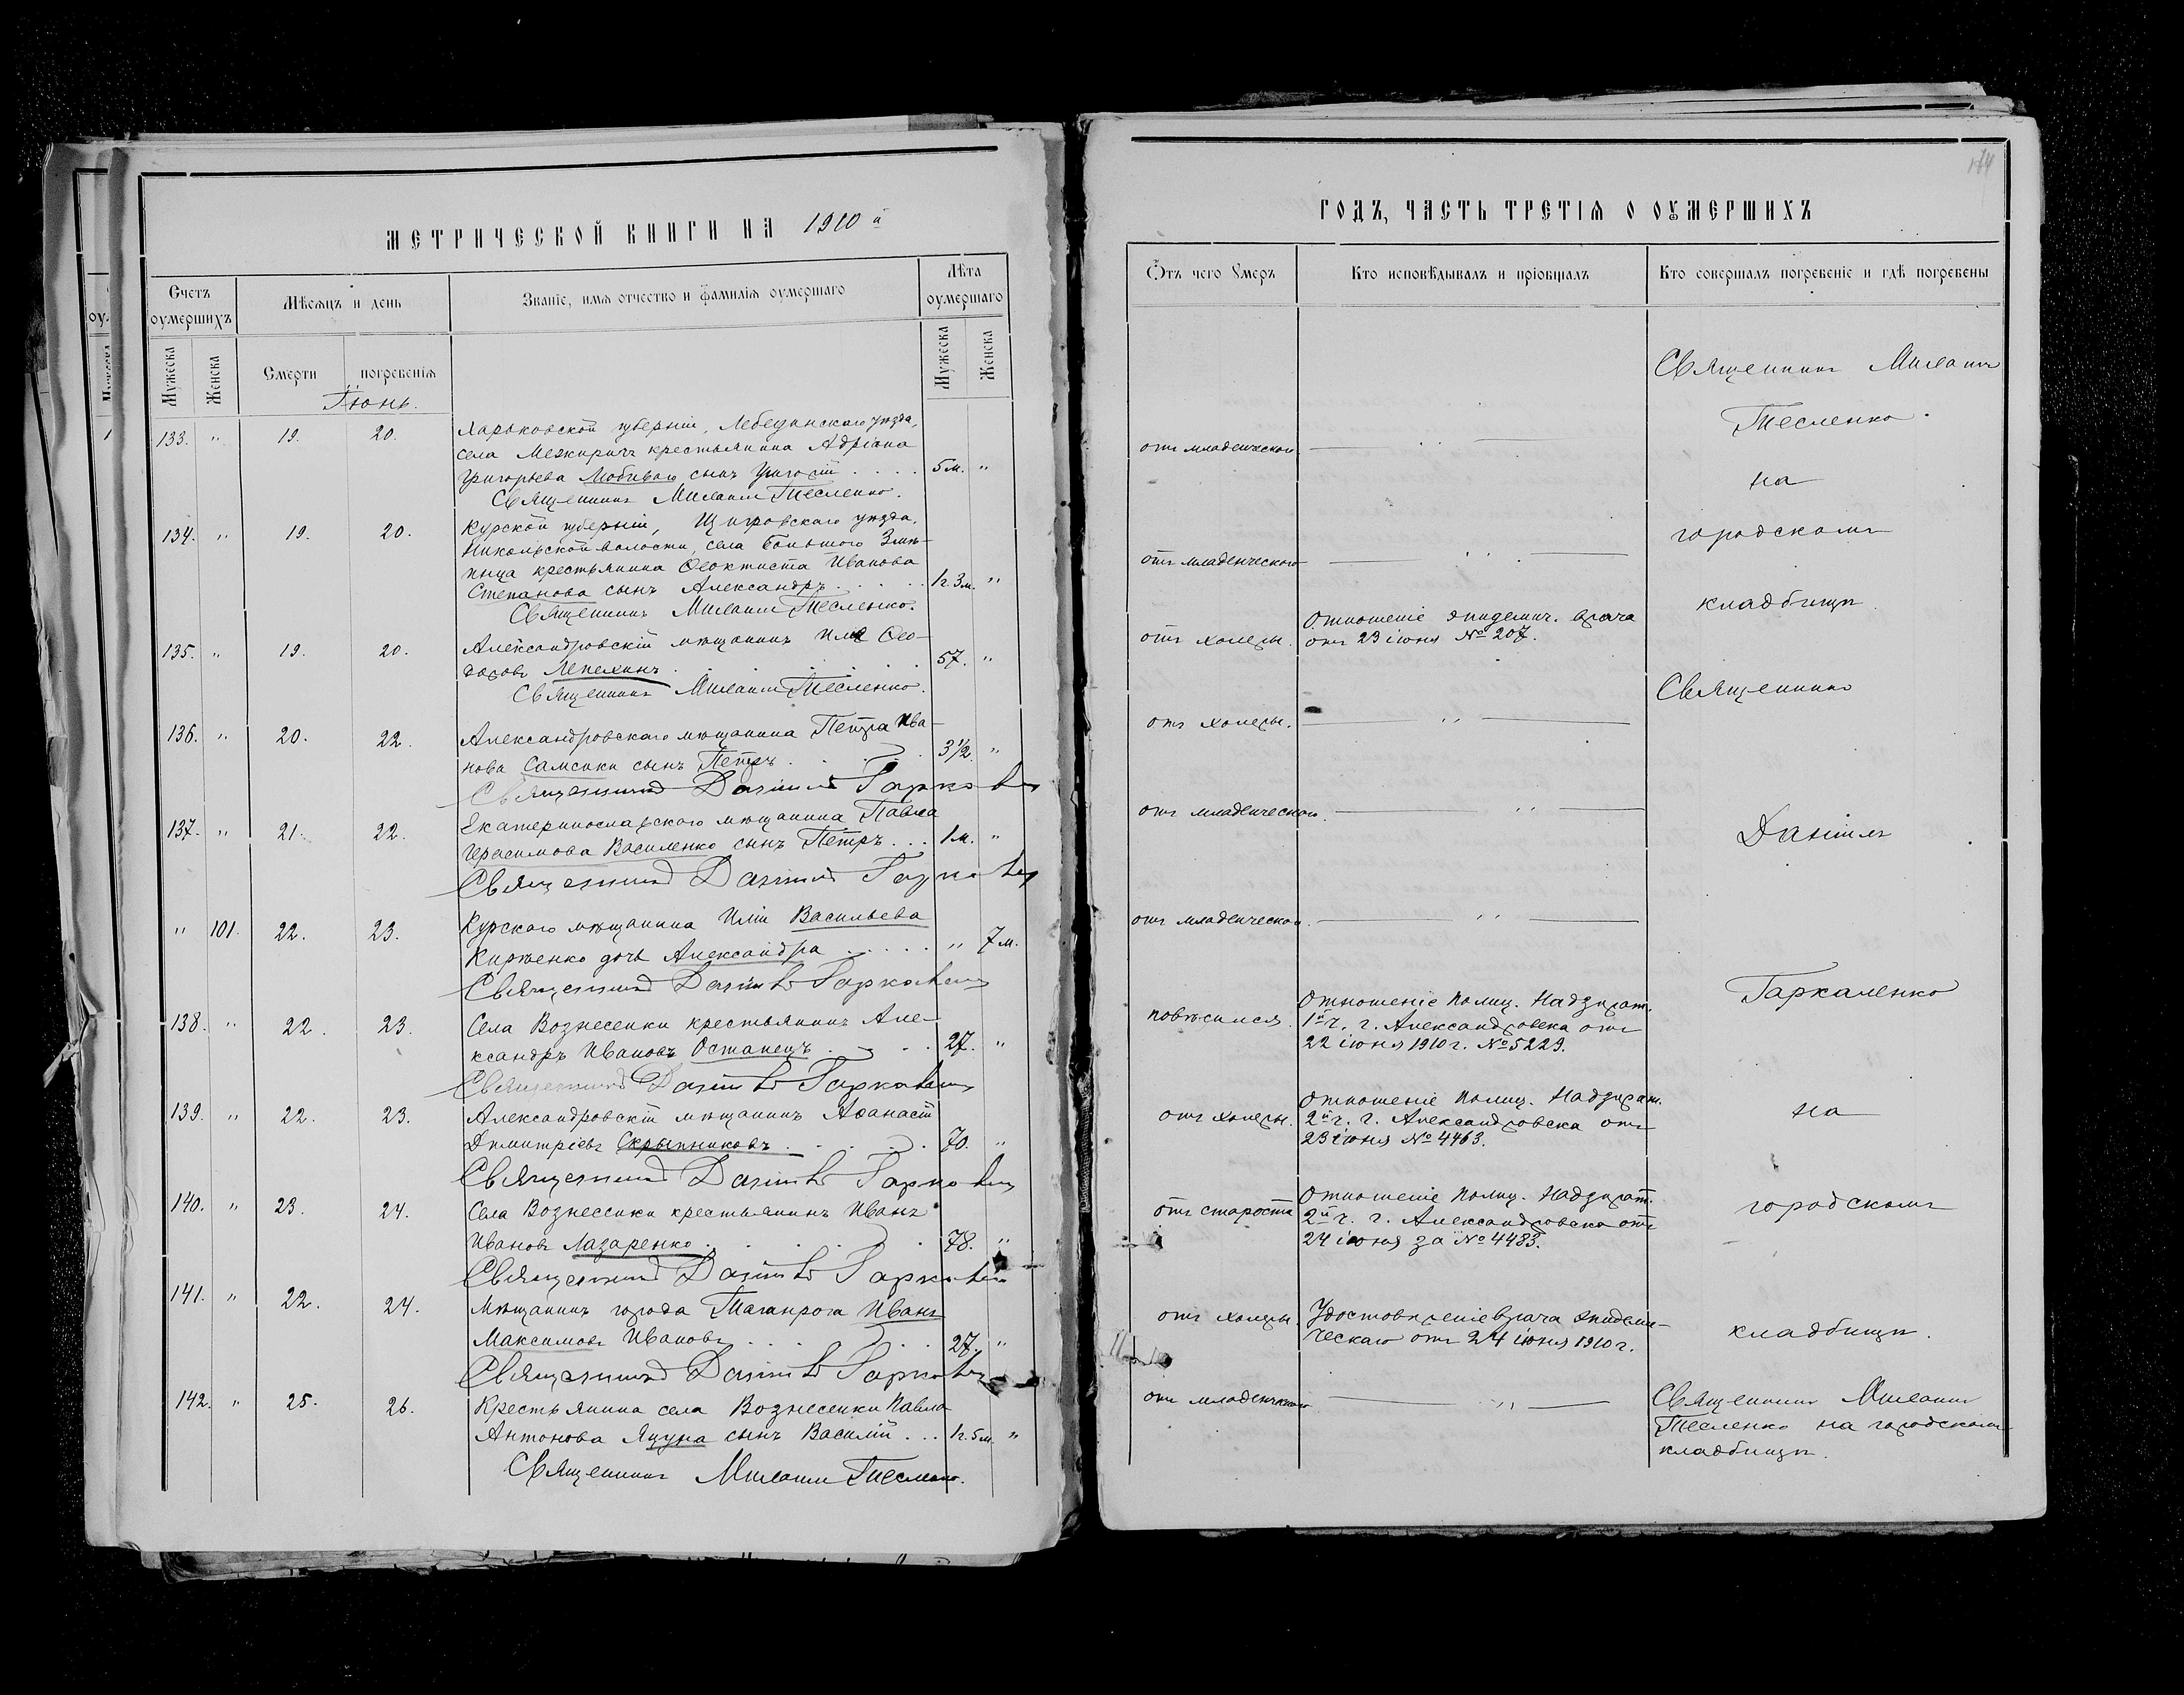 МЕТРИЧЕСКОЙ КНИГИ НА 1910й
Счетъ оумершихъ
Мѣсяцъ и день
Званіе, имя отчество и фамилія оумершаго
Лѣта оумершаго
Мужеска
Женска
Смерти
погребенія
Мужеска
Женска
Іюнь.
133. " 19. 20. Харьковской губерніи, Лебединскаго уѣзда,
села Межиричъ крестьянина Адріана
Григорьева сынъ . . . . 5 м. "
Священникъ Михаилъ Тесленко.
134. " 19. 20. Курской губерніи, Щигровскаго уѣзда,
Никольской волости, села Большого Змѣ-
инца крестьянина Ѳеоктиста Иванова
Степанова сынъ Александръ . . . . . 1 г. 3 м. "
Священникъ Михаилъ Тесленко.
135. " 19. 20. Александровскій мѣщанинъ Илія Ѳео-
доровъ Лепехинъ . . . . . . . 57. "
Священникъ Михаилъ Тесленко.
136. " 20. 22. Александровскаго мѣщанина Петра Ива-
нова Самсики сынъ Петръ . . . . . 3 1/2. "
Священникъ Даніилъ
137. " 21. 22. Екатеринославскаго мѣщанина Павла
Герасимова Василенко сынъ Петръ . . . 1 м. "
Священникъ Даніилъ
" 101. 22. 23. Курскаго мѣщанина Иліи Васильева
дочь Александра . . . . . " 7 м.
Священникъ Даніилъ
138. " 22. 23. Села Вознесенки крестьянинъ Але-
ксандръ Ивановъ Останецъ . . . . . 27. "
Священникъ Даніилъ
139. " 22. 23. Александровскій мѣщанинъ Аѳанасій
Димитріевъ Скрыпниковъ . . . . . 70. "
Священникъ Даніилъ
140. " 23. 24. Села Вознесенки крестьянинъ Иванъ
Ивановъ Лазаренко . . . . . . 78. "
Священникъ Даніилъ
141. " 22. 24. Мѣщанинъ города Таганрога Иванъ
Максимовъ Ивановъ . . . . . 27. "
Священникъ Даніилъ
142. " 25. 26. Крестьянина села Вознесенки Павла
Антонова Яцуна сынъ Василій . . . 1 г. 5 м. "
Священникъ Михаилъ Тесленко.
ГОДЪ, ЧАСТЬ ТРЕТІЯ О ОУМЕРШИХЪ
Отъ чего Умеръ
Кто исповѣдывалъ и пріобщалъ
Кто совершалъ погребеніе и гдѣ погребены
отъ младенческой
отъ младенческого
отъ холеры. Отношеніе эпидемич. врача
отъ 23 іюня № 207.
отъ холеры. "
отъ младенческаго. "
отъ младенческой. "
повѣсился. Отношеніе Полиц. Надзират.
1й ч. г. Александровска отъ
22 іюня 1910 г. № 5229.
отъ холеры. Отношеніе Полиц. Надзират.
2й ч. г. Александровска отъ
23 іюня № 4463.
отъ старости Отношеніе Полиц. Надзират.
2й ч. г. Александровска отъ
24 іюня за № 4483.
отъ холеры. Удостовѣреніе врача эпидеми-
ческаго отъ 24 іюня 1910 г.
отъ младенческаго "
Священникъ Михаилъ
Тесленко
на
городскомъ
кладбищѣ.
Священникъ
Даніилъ
Гаркаленко
на
городскомъ
кладбищѣ.
Священникъ Михаилъ
Тесленко на городскомъ
кладбищѣ.